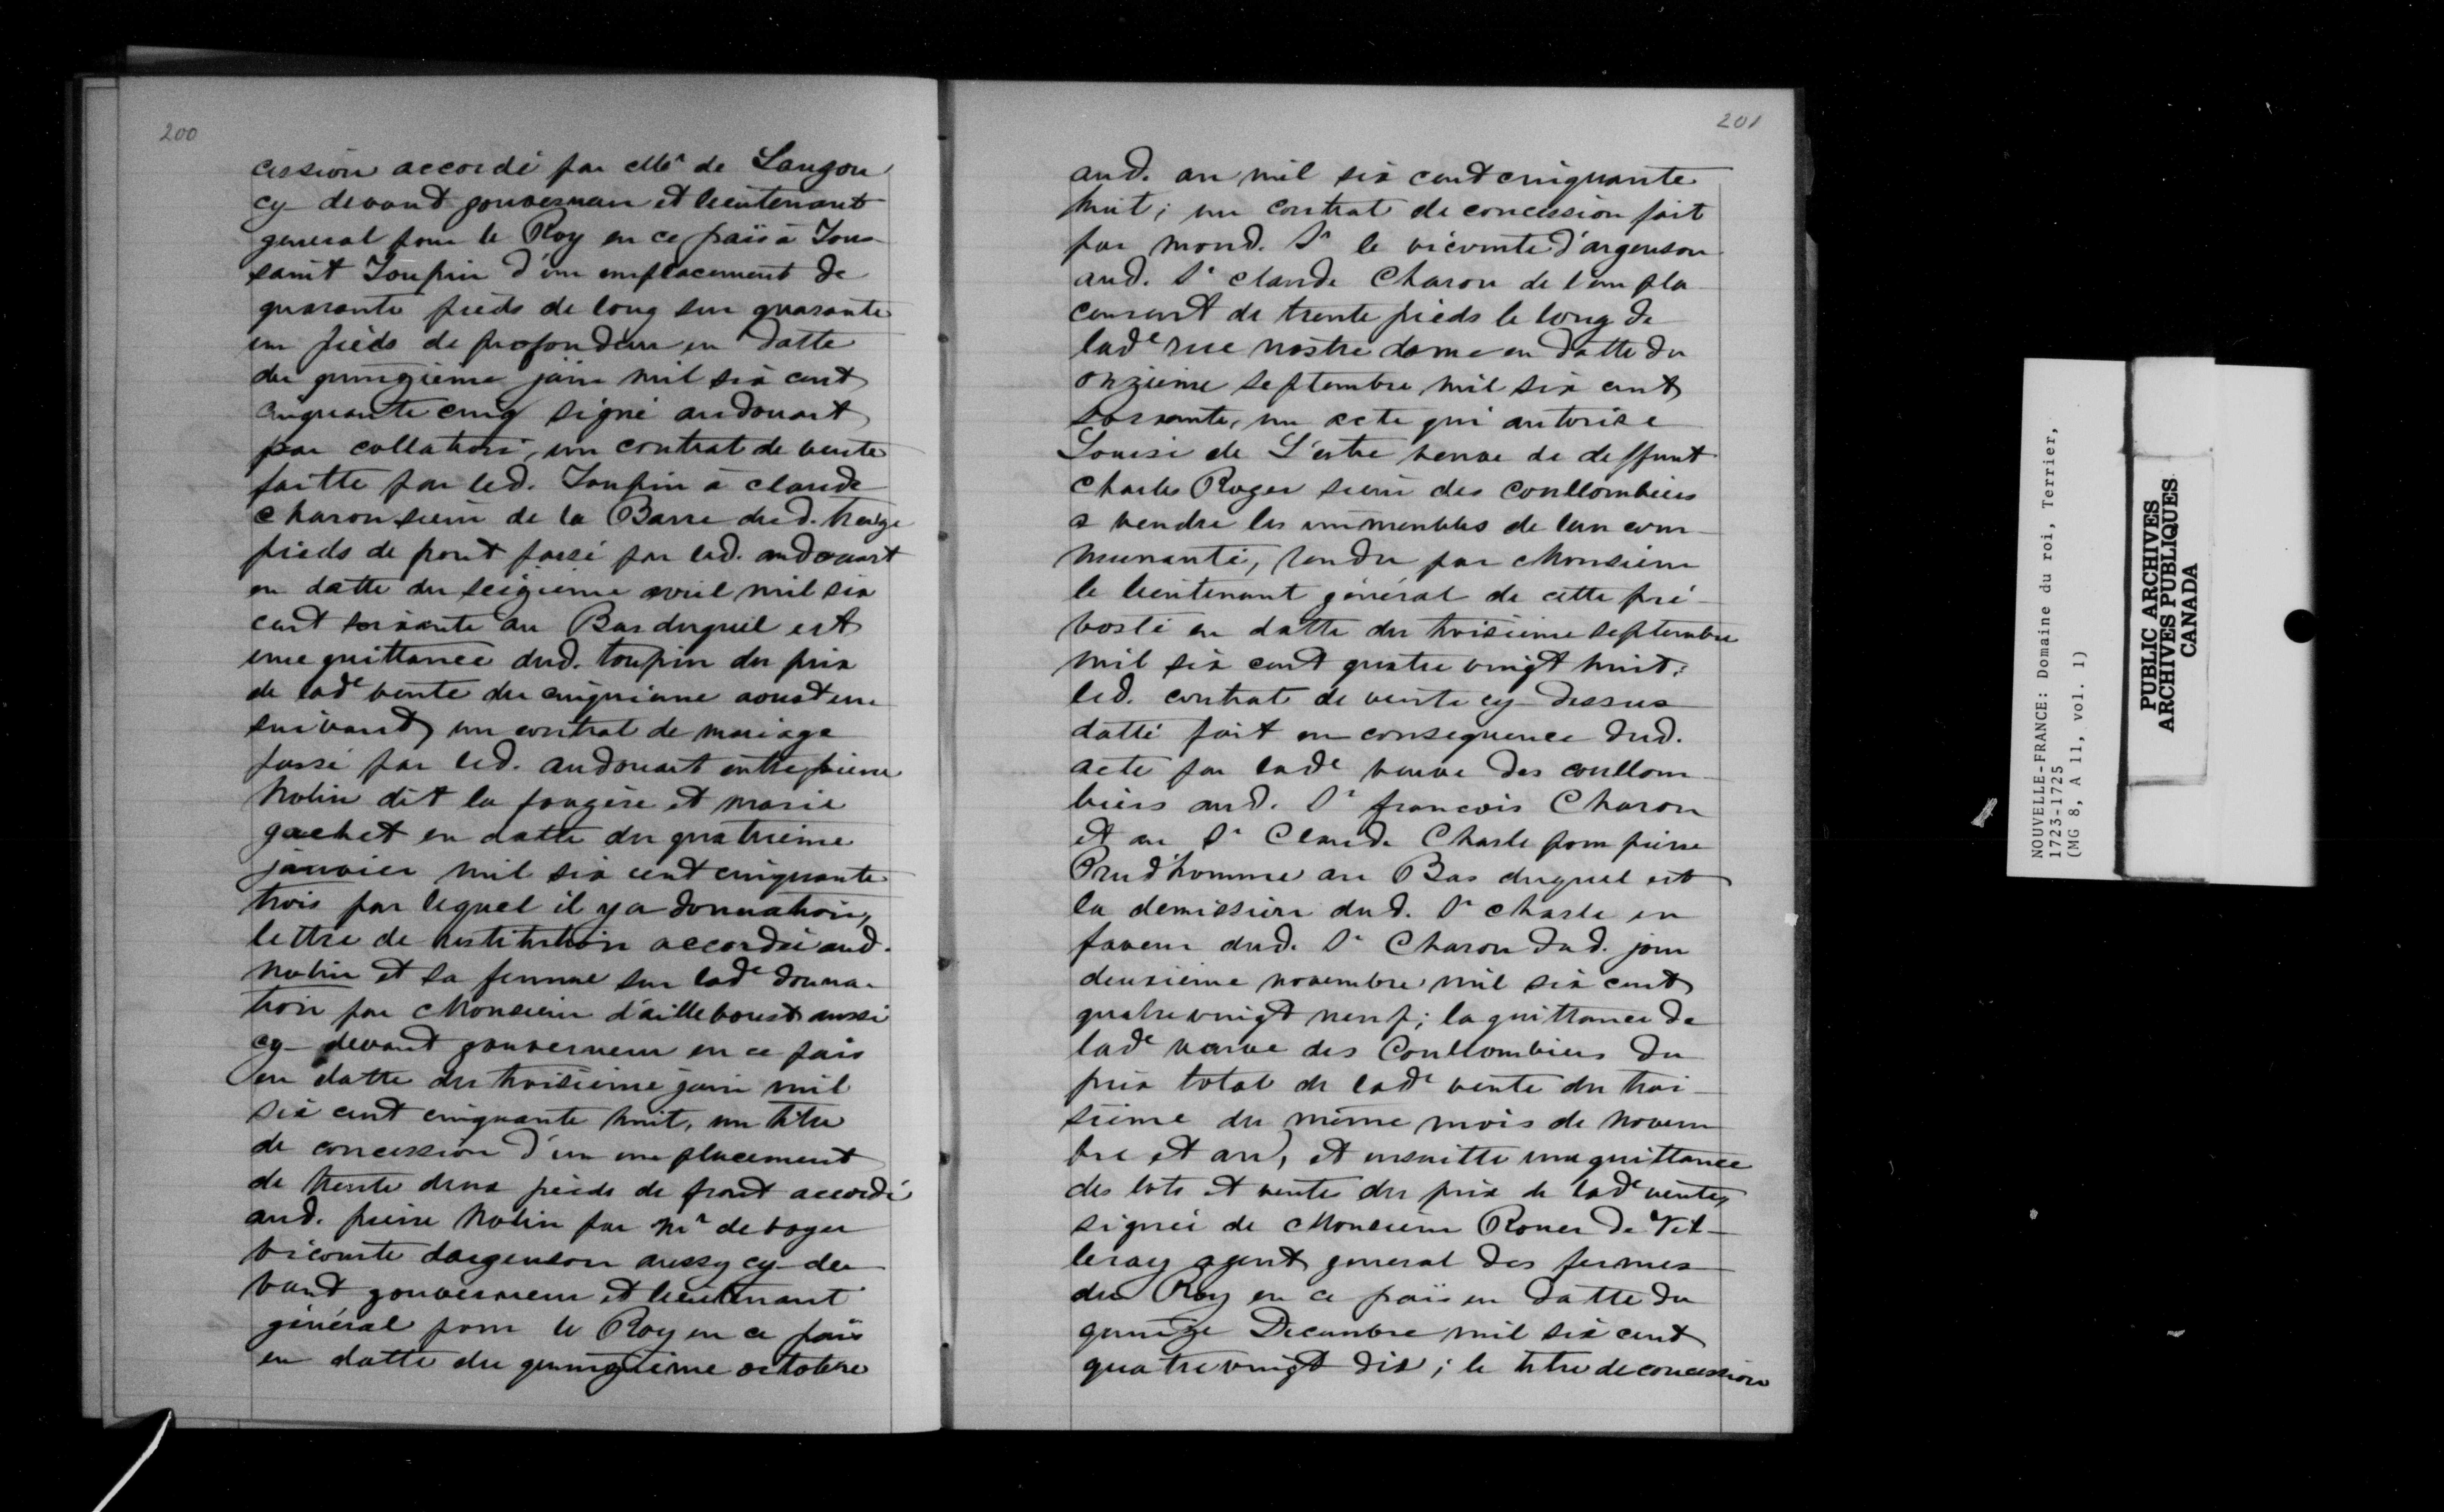 200
cession accordé par Mr de Lauzon
cy devant gouverneur et lieutenant
general pour le Roy en ce païs à Tous-
saint Toupin d'un emplacement de
quarante pieds de long sur quarante
un pieds de profondeur en datte
du quinzième juin mil six cent
cinquante cinq signé audouart
par collation, un contrat de vente
faitte par led. Toupin à claude
Charon sieur de la Barre dud. treize
pieds de front passé par led. audouart
en datte du seizieme avril mil six
cent soixante au Bas duquel est
une quittance dud. toupin du prix
de lade vente du cinquieme aoust en
suivant, un contrat de mariage
passé par led. audouart entre pierre
Nolin dit la fougère et marie
gachet en datte du quatrieme
janvier mil six cent cinquante
trois par lequel il y a donnation,
lettre de restitution accordée aud.
nolin et sa femme sur lade donna-
tion par Monsieur d'ailleboust aussi
cy-devant gouverneur en ce païs
en datte du troisieme juin mil
six cent cinquante huit, un titre
de concession d'un emplacement
de trente deux pieds de front accordé
aud. pierre Nolin par Mr de voyer
vicomte dargenson aussy cy-de-
vant gouverneur et lieutenant
général pour le Roy en ce païs
en datte du quinzieme octobre
201
aud. an mil six cent cinquante
huit; un contrat de concession fait
par mond. Sr le vicomte d'argenson
aud. Sr claude Charon de l'empla-
cement de trente pieds le long de
lade rue nostre dame en datte du
onzieme septembre mil six cent
soixante, un acte qui autorise
Louise de L'estre veuve de deffunt
Charles Roger sieur des coullombiers
a vendre les immeubles de leur com-
munauté, rendu par Monsieur
le lieutenant général de cette pré-
vosté en datte du troisieme septembre
mil six cent quatre vingt huit;
led. contrat de vente cy-dessus
datté fait en consequence dud.
acte par lade veuve des coullom-
biers aud. Sr francois Charon
et au Sr Claude Charle pour pierre
Prud'homme au Bas duquel est
la demission dud. Sr charle en
faveur dud. Sr Charon dud. jour
deuxieme novembre mil six cent
quatre vingt neuf; la quittance de
lade veuve des Coullombiers du
prix total de lade vente du troi-
sieme du même mois de novem-
bre et an, et ensuitte une quittance
des lots et vente du prix de lade vente,
signée de Monsieur Rouer de Vil-
leray agent general des fermes
du Roy en ce païs en datte du
quinze Decembre mil six cent
quatre vingt dix; le titre de concession
NOUVELLE-FRANCE: Domaine du roi, Terrier,
1723-1725
(MG 8, A 11, vol. 1)
PUBLIC ARCHIVES
ARCHIVES PUBLIQUES
CANADA